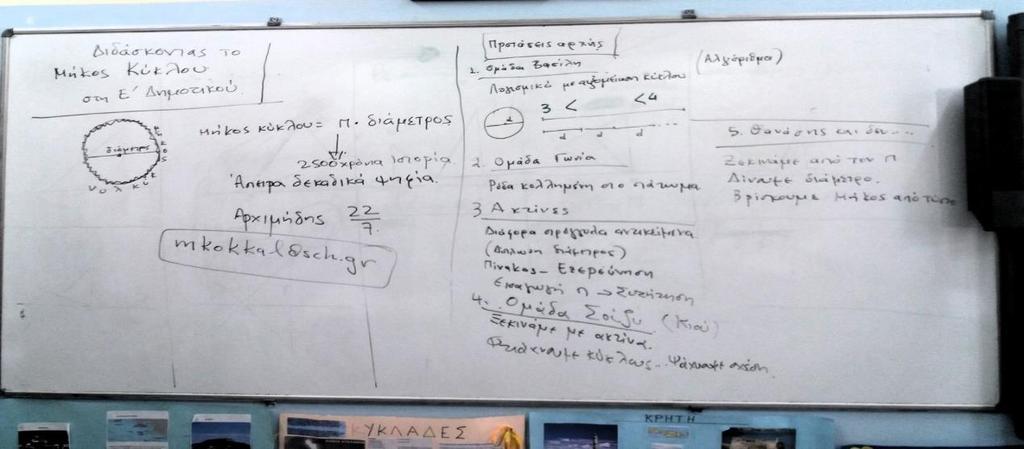 Διδάσκοντας το
Μήκος Κύκλου
στη Ε' Δημοτικού
διάμετρος
μήκος κύκλου = π. διάμετρος
2500 χρόνια Ιστορία
Άπειρα δεκαδικά ψηφία.
Αρχιμήδης 22/7
mkokkal@sch.gr
Προτάσεις αρχής
1. Ομάδα Βασίλη
Λογισμικό με αυξομείωση κύκλου
3 < <4
d
d d d ...
2. Ομάδα Γωνία
Ρόδα κολλημένη στο πάτωμα
3 Ακτίνες
Διάφορα στρογγυλά αντικείμενα
(Δήλωση διάμετρος)
Πίνακας - Εξερεύνηση
Εισαγωγή π → Συζήτηση
4. Ομάδα Σουζυ (Κιού)
Ξεκινάμε με ακτίνα.
Φτιάχνουμε κύκλους.. Ψάχνουμε σχέση
(Αλγόριθμοι)
5. Θανάσης και
Ξεκινάμε από τον π
Δίνουμε διάμετρο.
Βρίσκουμε Μήκος από τύπο
ΚΥΚΛΑΔΕΣ
ΚΡΗΤΗ